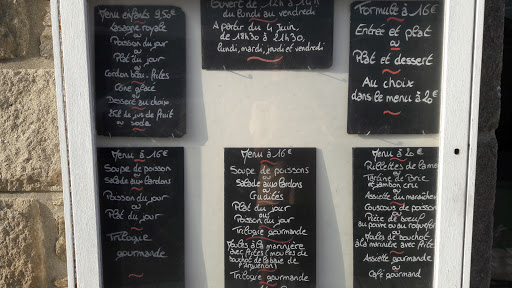 Menu enfants 9,50€
Lasagne royale
ou
Poisson du jour
ou
Plat du jour
ou
Cordon bleu-frites
Cône glacé
ou
Dessert au choix
25cl de jus de fruit
ou soda
Ouvert de 12h à 14h
du lundi au vendredi
A partir du 4 juin,
de 18h30 à 21h30,
lundi, mardi, jeudi et vendredi
Formule à 16€
Entrée et plat
ou
Plat et dessert
Au choix
dans le menu à 20€
Menu à 16€
Soupe de poisson
ou
Salade aux lardons
Poisson du jour
ou
Plat du jour
Trilogie
gourmande
Menu à 16€
Soupe de poissons
ou
Salade aux lardons
ou
Crudités
Plat du jour
ou
Poisson du jour
ou
Moules à la marinière
avec frites, moules de
bouchot de la baie de
l'Aiguillon
Trilogie gourmande
Menu à 20€
Rillettes de la mer
ou
Tartine de Brie
et jambon cru
ou
Assiette du maraîcher
Couscous de poisson
ou
Pièce de bœuf
au poivre ou au roquefort
ou
Moules de bouchot
à la marinière avec frites
Assiette gourmande
ou
Café gourmand